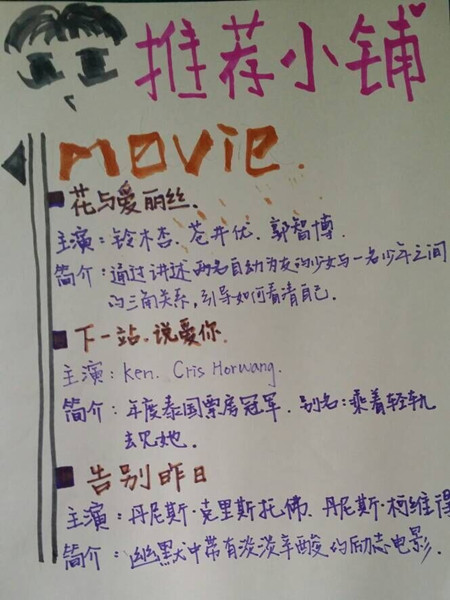 推荐小铺
MOVIE.
花与爱丽丝.
主演：铃木杏. 苍井优. 郭智博.
简介：通过讲述两名自幼为友的少女与一名少年之间
的三角关系,引导如何看清自己.
下一站.说爱你.
主演：Ken. Cris Horwang.
简介：年度泰国票房冠军. 别名：乘着轻轨
去见她.
告别昨日
主演：丹尼斯·克里斯托佛. 丹尼斯·柯维得
简介：幽默中带有淡淡辛酸的励志电影.